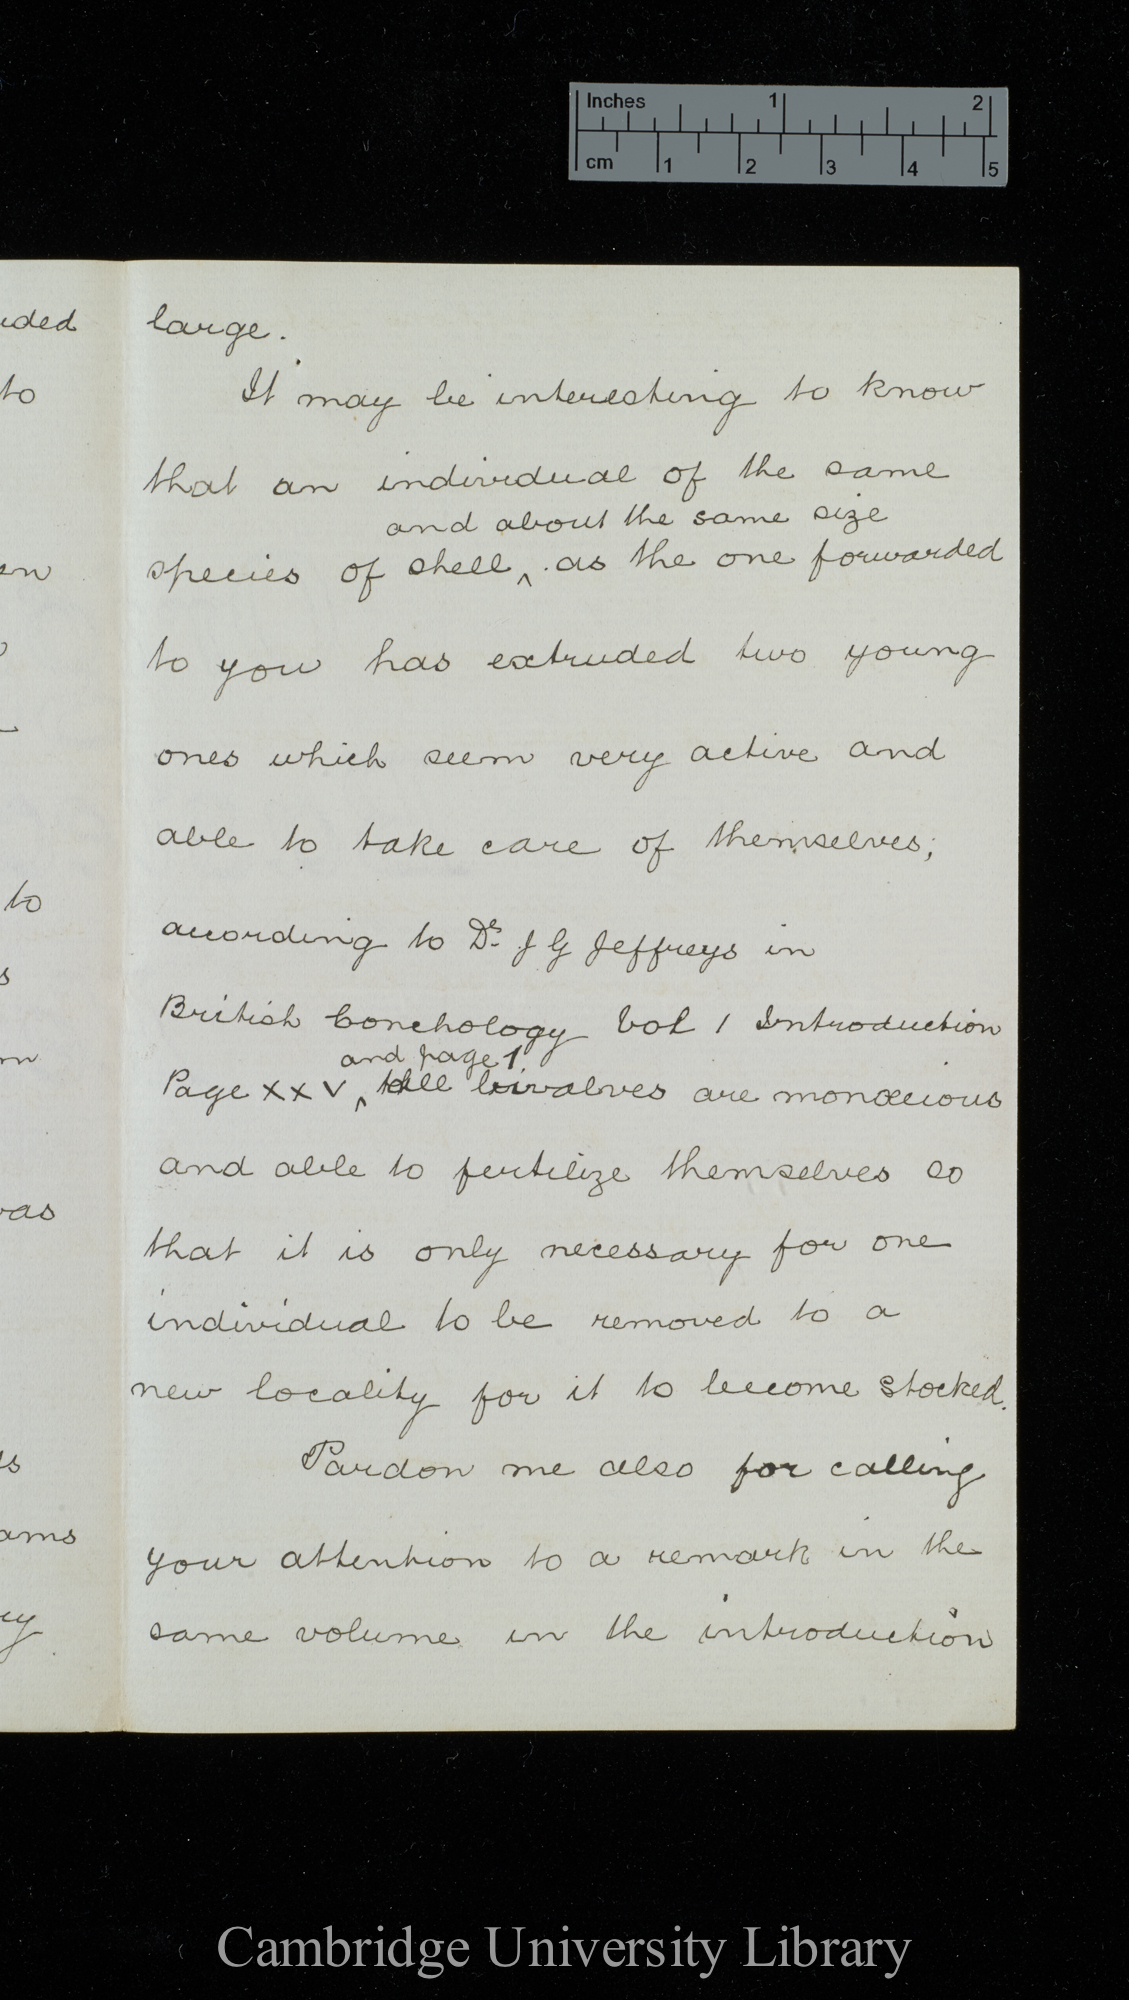 Inches 1 2
cm 1 2 3 4 5
large.
It may be interesting to know
that an individual of the same
and about the same size
species of shell ^ as the one forwarded
to you has extruded two young
ones which seem very active and
able to take care of themselves;
according to Dr. J G Jeffreys in
British Conchology Vol 1 Introduction
and page 1
Page XXV ^ all bivalves are monœcious
and able to fertilize themselves so
that it is only necessary for one
individual to be removed to a
new locality for it to become stocked.
Pardon me also for calling
your attention to a remark in the
same volume in the introduction
to
to
Cambridge University Library